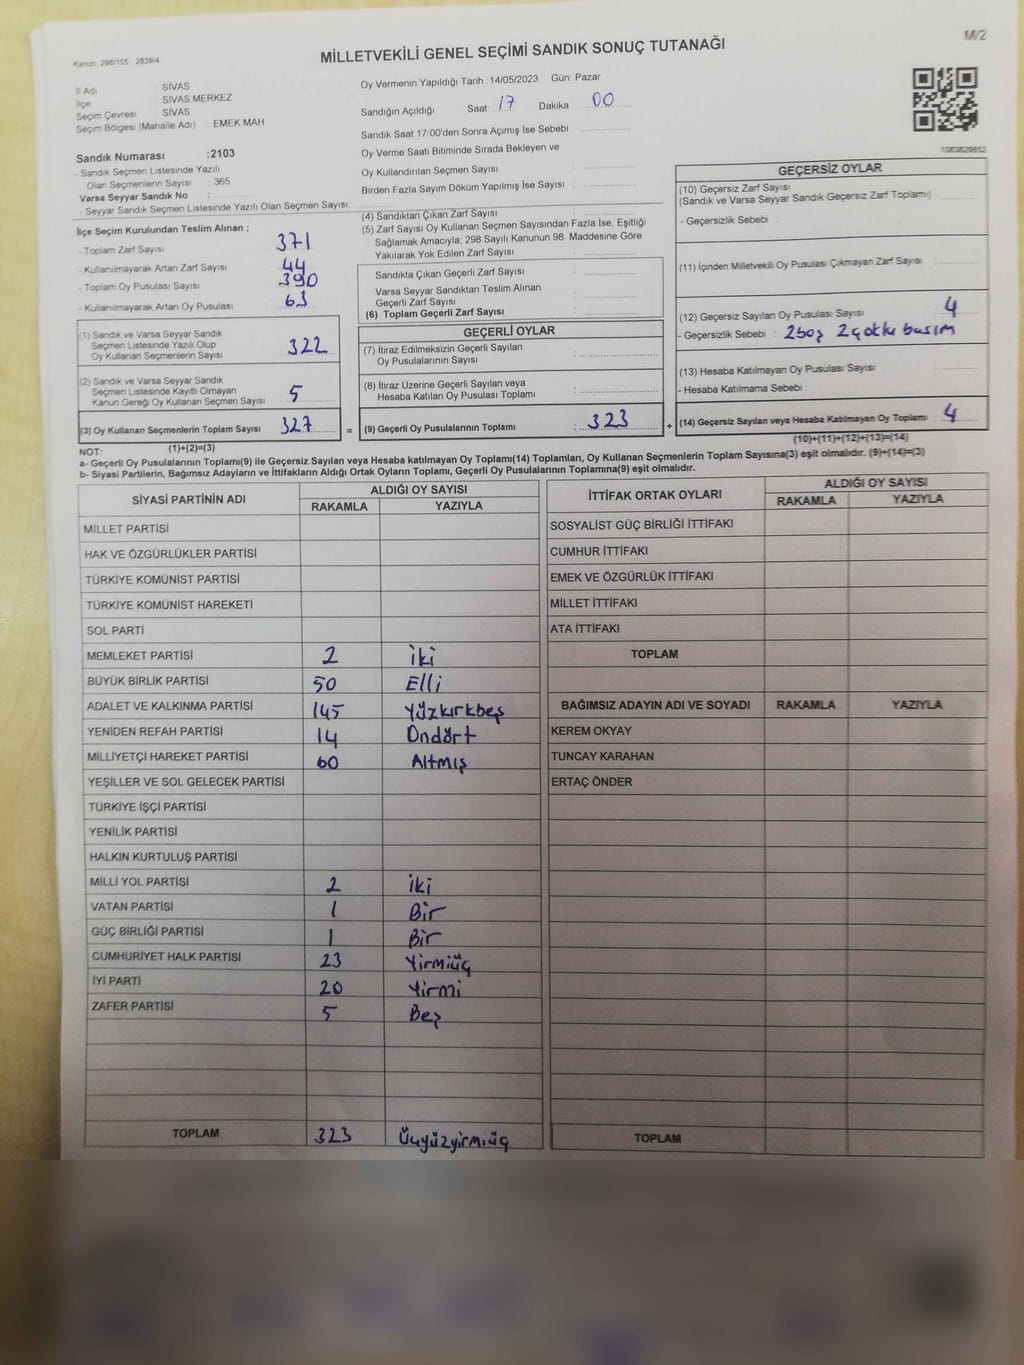 M/2
Kanun: 298/105 2839/4
MİLLETVEKİLİ GENEL SEÇİMİ SANDIK SONUÇ TUTANAĞI
İl Adı SİVAS
İlçe SİVAS MERKEZ
Seçim Çevresi SİVAS
Seçim Bölgesi (Mahalle Adı) EMEK MAH.
Sandık Numarası :2103
- Sandık Seçmen Listesinde Yazılı
Olan Seçmenlerin Sayısı : 365
Varsa Seyyar Sandık No :
- Seyyar Sandık Seçmen Listesinde Yazılı Olan Seçmen Sayısı:
Oy Vermenin Yapıldığı Tarih :14/05/2023 Gün: Pazar
Sandığın Açıldığı Saat: 17 Dakika 00
Sandık Saat 17:00'den Sonra Açımış İse Sebebi :
Oy Verme Saati Bitiminde Sırada Bekleyen ve
Oy Kullandırılan Seçmen Sayısı :
Birden Fazla Sayım Döküm Yapılmış İse Sayısı :
İlçe Seçim Kurulundan Teslim Alınan ;
- Toplam Zarf Sayısı : 371
- Kullanılmayarak Artan Zarf Sayısı : 44
- Toplam Oy Pusulası Sayısı : 390
- Kullanılmayarak Artan Oy Pusulası : 63
(1) Sandık ve Varsa Seyyar Sandık
Seçmen Listesinde Yazılı Olup
Oy Kullanan Seçmenlerin Sayısı : 322
(2) Sandık ve Varsa Seyyar Sandık
Seçmen Listesinde Kayıtlı Olmayan
Kanun Gereği Oy Kullanan Seçmen Sayısı : 5
(3) Oy Kullanan Seçmenlerin Toplam Sayısı : 327
(4) Sandıktan Çıkan Zarf Sayısı :
(5) Zarf Sayısı Oy Kullanan Seçmen Sayısından Fazla İse, Eşitliği
Sağlamak Amacıyla, 298 Sayılı Kanunun 98. Maddesine Göre
Yakılarak Yok Edilen Zarf Sayısı :
Sandıkta Çıkan Geçerli Zarf Sayısı :
Varsa Seyyar Sandıktan Teslim Alınan
Geçerli Zarf Sayısı :
(6) Toplam Geçerli Zarf Sayısı :
GEÇERLİ OYLAR
(7) İtiraz Edilmeksizin Geçerli Sayılan
Oy Pusulalarının Sayısı :
(8) İtiraz Üzerine Geçerli Sayılan veya
Hesaba Katılan Oy Pusulası Toplamı :
= (9) Geçerli Oy Pusulalarının Toplamı : 323 +
GEÇERSİZ OYLAR
(10) Geçersiz Zarf Sayısı
(Sandık ve Varsa Seyyar Sandık Geçersiz Zarf Toplamı)
- Geçersizlik Sebebi :
(11) İçinden Milletvekili Oy Pusulası Çıkmayan Zarf Sayısı :
(12) Geçersiz Sayılan Oy Pusulası Sayısı : 4
- Geçersizlik Sebebi : 2 boş 2 çoklu basım
(13) Hesaba Katılmayan Oy Pusulası Sayısı :
- Hesaba Katılmama Sebebi :
(14) Geçersiz Sayılan veya Hesaba Katılmayan Oy Toplamı : 4
NOT: (1)+(2)=(3)
(10)+(11)+(12)+(13)=(14)
a- Geçerli Oy Pusulalarının Toplamı(9) ile Geçersiz Sayılan veya Hesaba katılmayan Oy Toplamı(14) Toplamları, Oy Kullanan Seçmenlerin Toplam Sayısına(3) eşit olmalıdır. (9)+(14)=(3)
b- Siyasi Partilerin, Bağımsız Adayların ve İttifakların Aldığı Ortak Oyların Toplamı, Geçerli Oy Pusulalarının Toplamına(9) eşit olmalıdır.
SİYASİ PARTİNİN ADI ALDIĞI OY SAYISI
RAKAMLA YAZIYLA
MİLLET PARTİSİ
HAK VE ÖZGÜRLÜKLER PARTİSİ
TÜRKİYE KOMÜNİST PARTİSİ
TÜRKİYE KOMÜNİST HAREKETİ
SOL PARTİ
MEMLEKET PARTİSİ 2 iki
BÜYÜK BİRLİK PARTİSİ 50 Elli
ADALET VE KALKINMA PARTİSİ 145 Yüzkırkbeş
YENİDEN REFAH PARTİSİ 14 Ondört
MİLLİYETÇİ HAREKET PARTİSİ 60 Altmış
YEŞİLLER VE SOL GELECEK PARTİSİ
TÜRKİYE İŞÇİ PARTİSİ
YENİLİK PARTİSİ
HALKIN KURTULUŞ PARTİSİ
MİLLİ YOL PARTİSİ 2 iki
VATAN PARTİSİ 1 Bir
GÜÇ BİRLİĞİ PARTİSİ 1 Bir
CUMHURİYET HALK PARTİSİ 23 Yirmiüç
İYİ PARTİ 20 Yirmi
ZAFER PARTİSİ 5 Beş
TOPLAM 323 Üçyüzyirmiüç
İTTİFAK ORTAK OYLARI ALDIĞI OY SAYISI
RAKAMLA YAZIYLA
SOSYALİST GÜÇ BİRLİĞİ İTTİFAKI
CUMHUR İTTİFAKI
EMEK VE ÖZGÜRLÜK İTTİFAKI
MİLLET İTTİFAKI
ATA İTTİFAKI
TOPLAM
BAĞIMSIZ ADAYIN ADI VE SOYADI RAKAMLA YAZIYLA
KEREM OKYAY
TUNCAY KARAHAN
ERTAÇ ÖNDER
TOPLAM